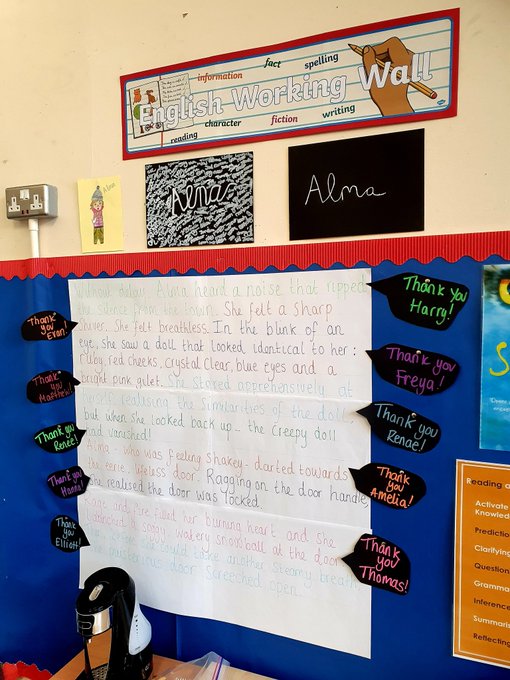 fact
spelling
information
English Working Wall
reading
character
fiction
writing
Alma
Alma
Without delay, Alma heard a noise that ripped
the silence from the town. She felt a sharp
shiver. She felt breathless. In the blink of an
eye, she saw a doll that looked identical to her:
ruby, red cheeks, crystal clear, blue eyes and a
bright pink gilet. She stared apprehensively at
herself, realising the similarities of the doll
but when she looked back up - the creepy doll
had vanished!
Alma - who was feeling shakey - darted towards
the eerie, lifeless door. Ragging on the door handle,
she realised the door was locked.
Rage and fire filled her burning heart and she
launched a soggy, watery snowball at the door
she could take another steamy breath,
mysterious door screeched open.
Thank you Evan!
Thank you Matthew!
Thank you Renee!
Thank you Hanna!
Thank you Elliott!
Thank you Harry!
Thank you Freya!
Thank you Renae!
Thank you Amelia!
Thank you Thomas!
Reading
Activate
Clarifying
Question
Inference
Reflecting